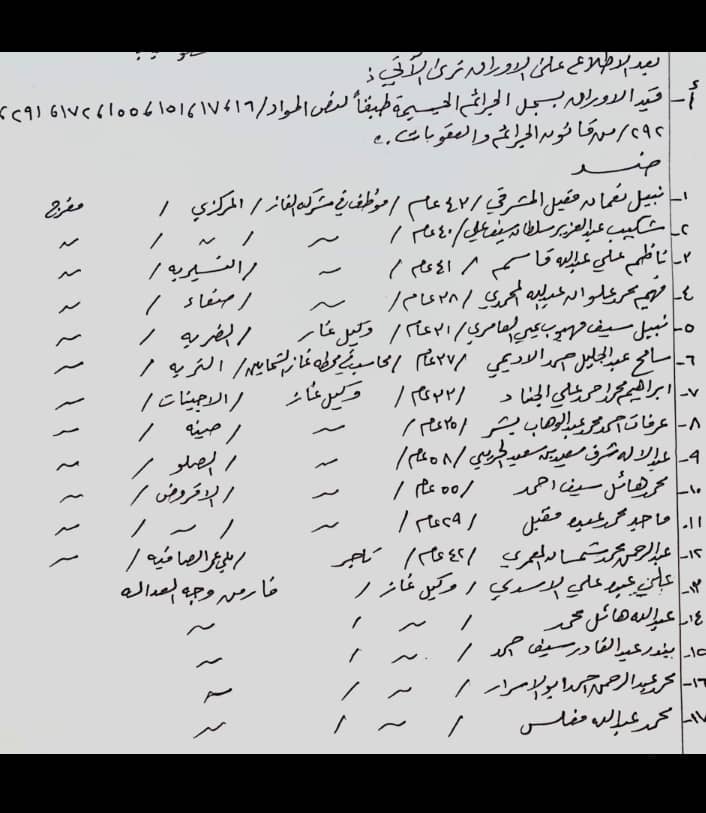 بعد الاطلاع على الاوراق نرى الآتي :
أ- قيد الاوراق بسجل الجرائم الجسيمة طبقاً لنص المواد / ١٦، ١٧، ١٥١، ١٥٥، ١٧٢، ٢٩١،
٢٩٢/ من قانون الجرائم والعقوبات .
ضد
١- نبيل نعمان مقبل المشرقي / ٤٢ عام / موظف في شركة الغاز / المركزي / مفرج
٢- شكيب عبدالعزيز سلطان سيف علي / ٤٠ عام / ~ / ~ / ~
٣- ناظم علي عبدالله قاسم / ٤١ عام / ~ / / ~
٤- فهيم محمد علوان عبدالله المحمدي / ٣٨ عام / ~ / صنعاء / ~
٥- نبيل سيف مهيوب يحيى العامري / ٣١ عام / وكيل غاز / الضربه / ~
٦- سامح عبدالجليل احمد الاديمي / ٣٧ عام / محاسب في محطه غاز / التربه / ~
٧- ابراهيم محمد احمد علي الجناد / ٣٣ عام / وكيل غاز / الاجينات / ~
٨- عرفات احمد محمد عبدالوهاب بشر / ٣٥ عام / ~ / صينه / ~
٩- عبدالاله شرف سعيد بن سعيد / ٥٨ عام / ~ / الصلو / ~
١٠- محمد هائل سيف احمد / ٥٥ عام / ~ / الاقروض / ~
١١- ماجد محمد عبده مقبل / ٢٩ عام / ~ / ~ / ~
١٢- عبدالرحمن محمد شمسان المعمري / ٤٢ عام / تاجر / الصافيه / ~
١٣- علي عبده علي الاسدي / وكيل غاز / فار من وجه العداله
١٤- عبدالله هائل محمد / ~ / ~
١٥- بندر عبدالقادر سيف احمد / ~ / ~
١٦- محمد عبدالرحمن احمد ابو الاسرار / ~ / ~
١٧- محمد عبدالله مغلس / ~ / ~